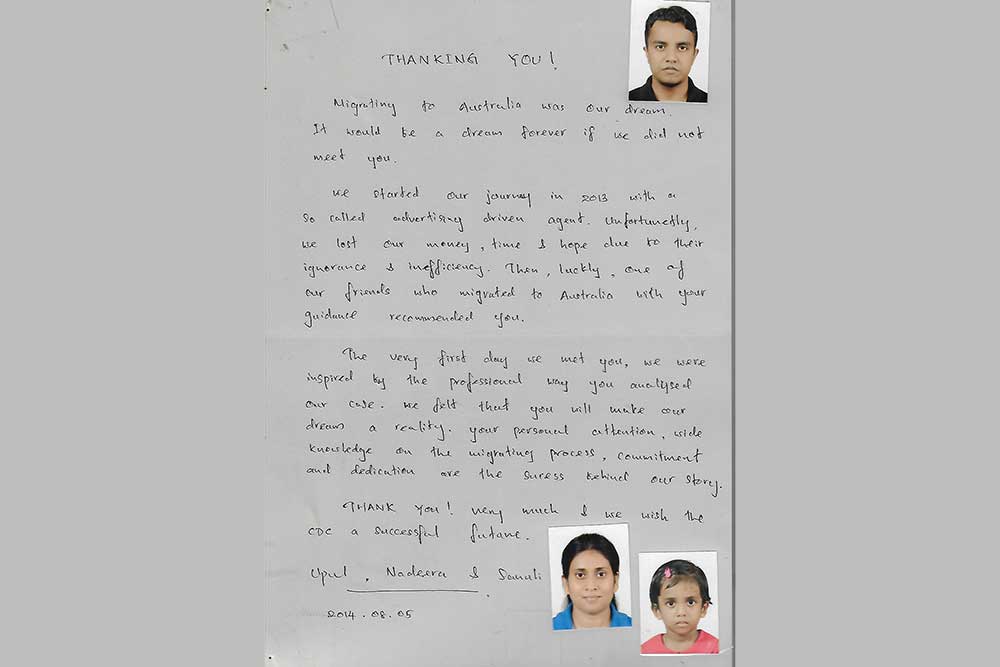 THANKING YOU!
Migrating to Australia was our dream.
It would be a dream forever if we did not
meet you.
We started our journey in 2013 with a
so called advertising driven agent. Unfortunetly,
we lost our money, time & hope due to their
ignorance & inefficiency. Then, luckly, one of
our friends who migrated to Australia with your
guidance recommended you.
The very first day we met you, we were
inspired by the professional way you analysed
our case. We felt that you will make our
dream a reality. Your personal attention, wide
knowledge on the migrating process, commitment
and dedication are the suress behind our story.
THANK YOU! very much & we wish the
CDC a successful future.
Upul, Nadeera & Sanuli
2014.08.05